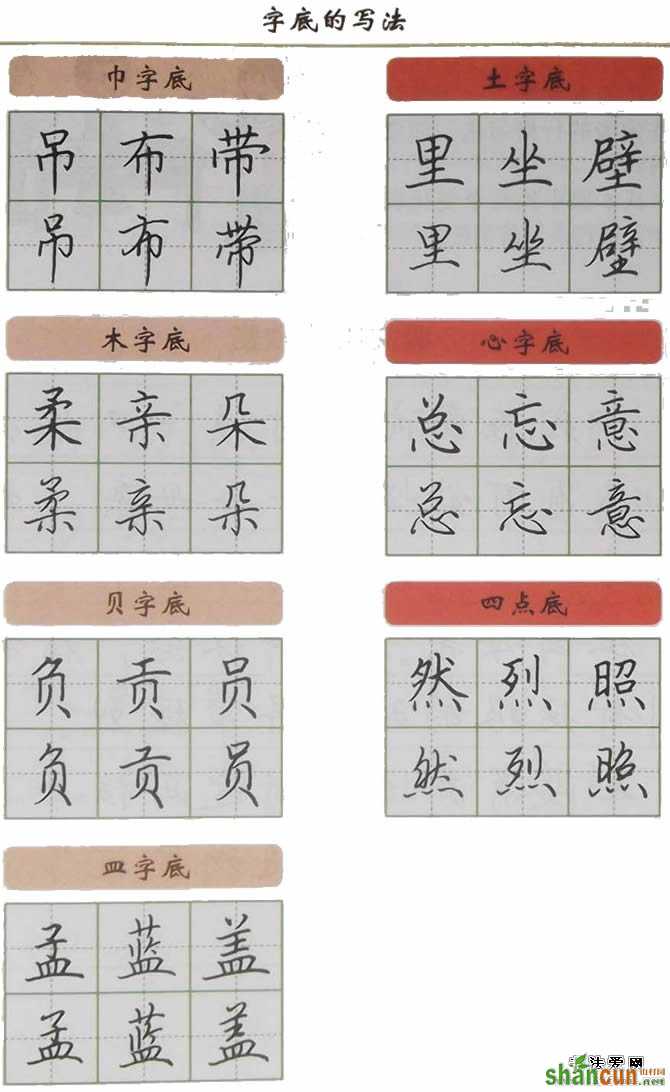 字底的写法
巾字底
吊布带
吊布带
土字底
里坐壁
里坐壁
木字底
柔亲朵
柔亲朵
心字底
总忘意
总忘意
贝字底
负贡员
负贡员
四点底
然烈照
然烈照
皿字底
孟蓝盖
孟蓝盖
法爱网
shancun
.net